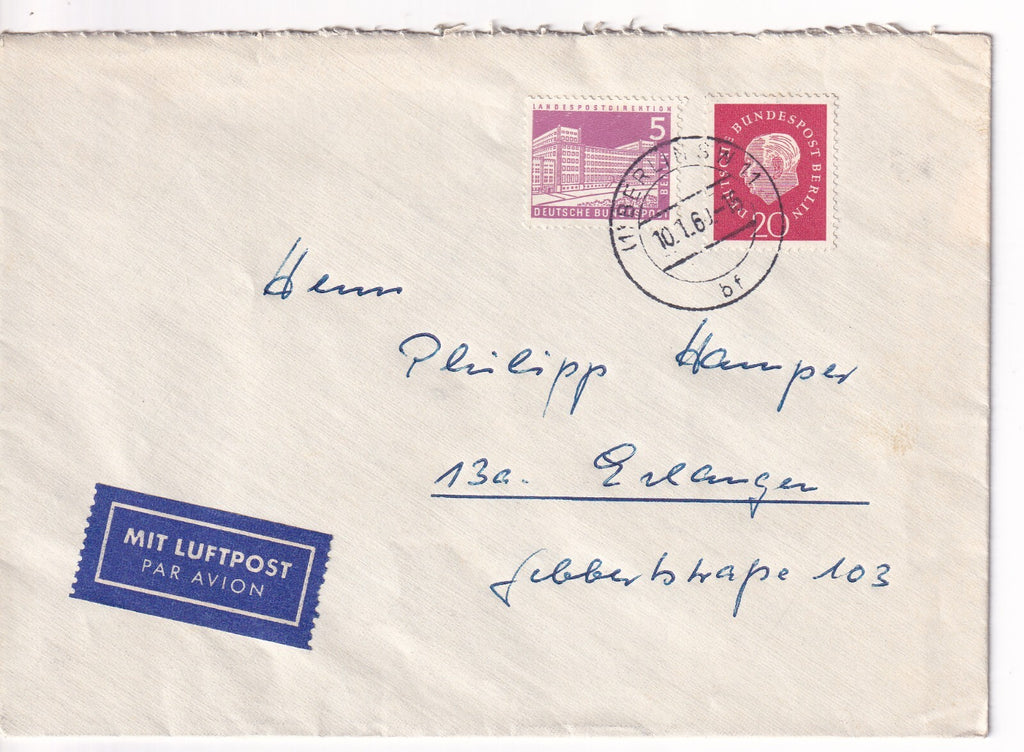 LANDESPOSTDIREKTION
5
BERLIN
DEUTSCHE BUNDESPOST
DEUTSCHE BUNDESPOST BERLIN
20
(1) BERLIN SW 11
10.1.60
bf
Herrn
Philipp Hamper
13a. Erlangen
Gebbertstraße 103
MIT LUFTPOST
PAR AVION